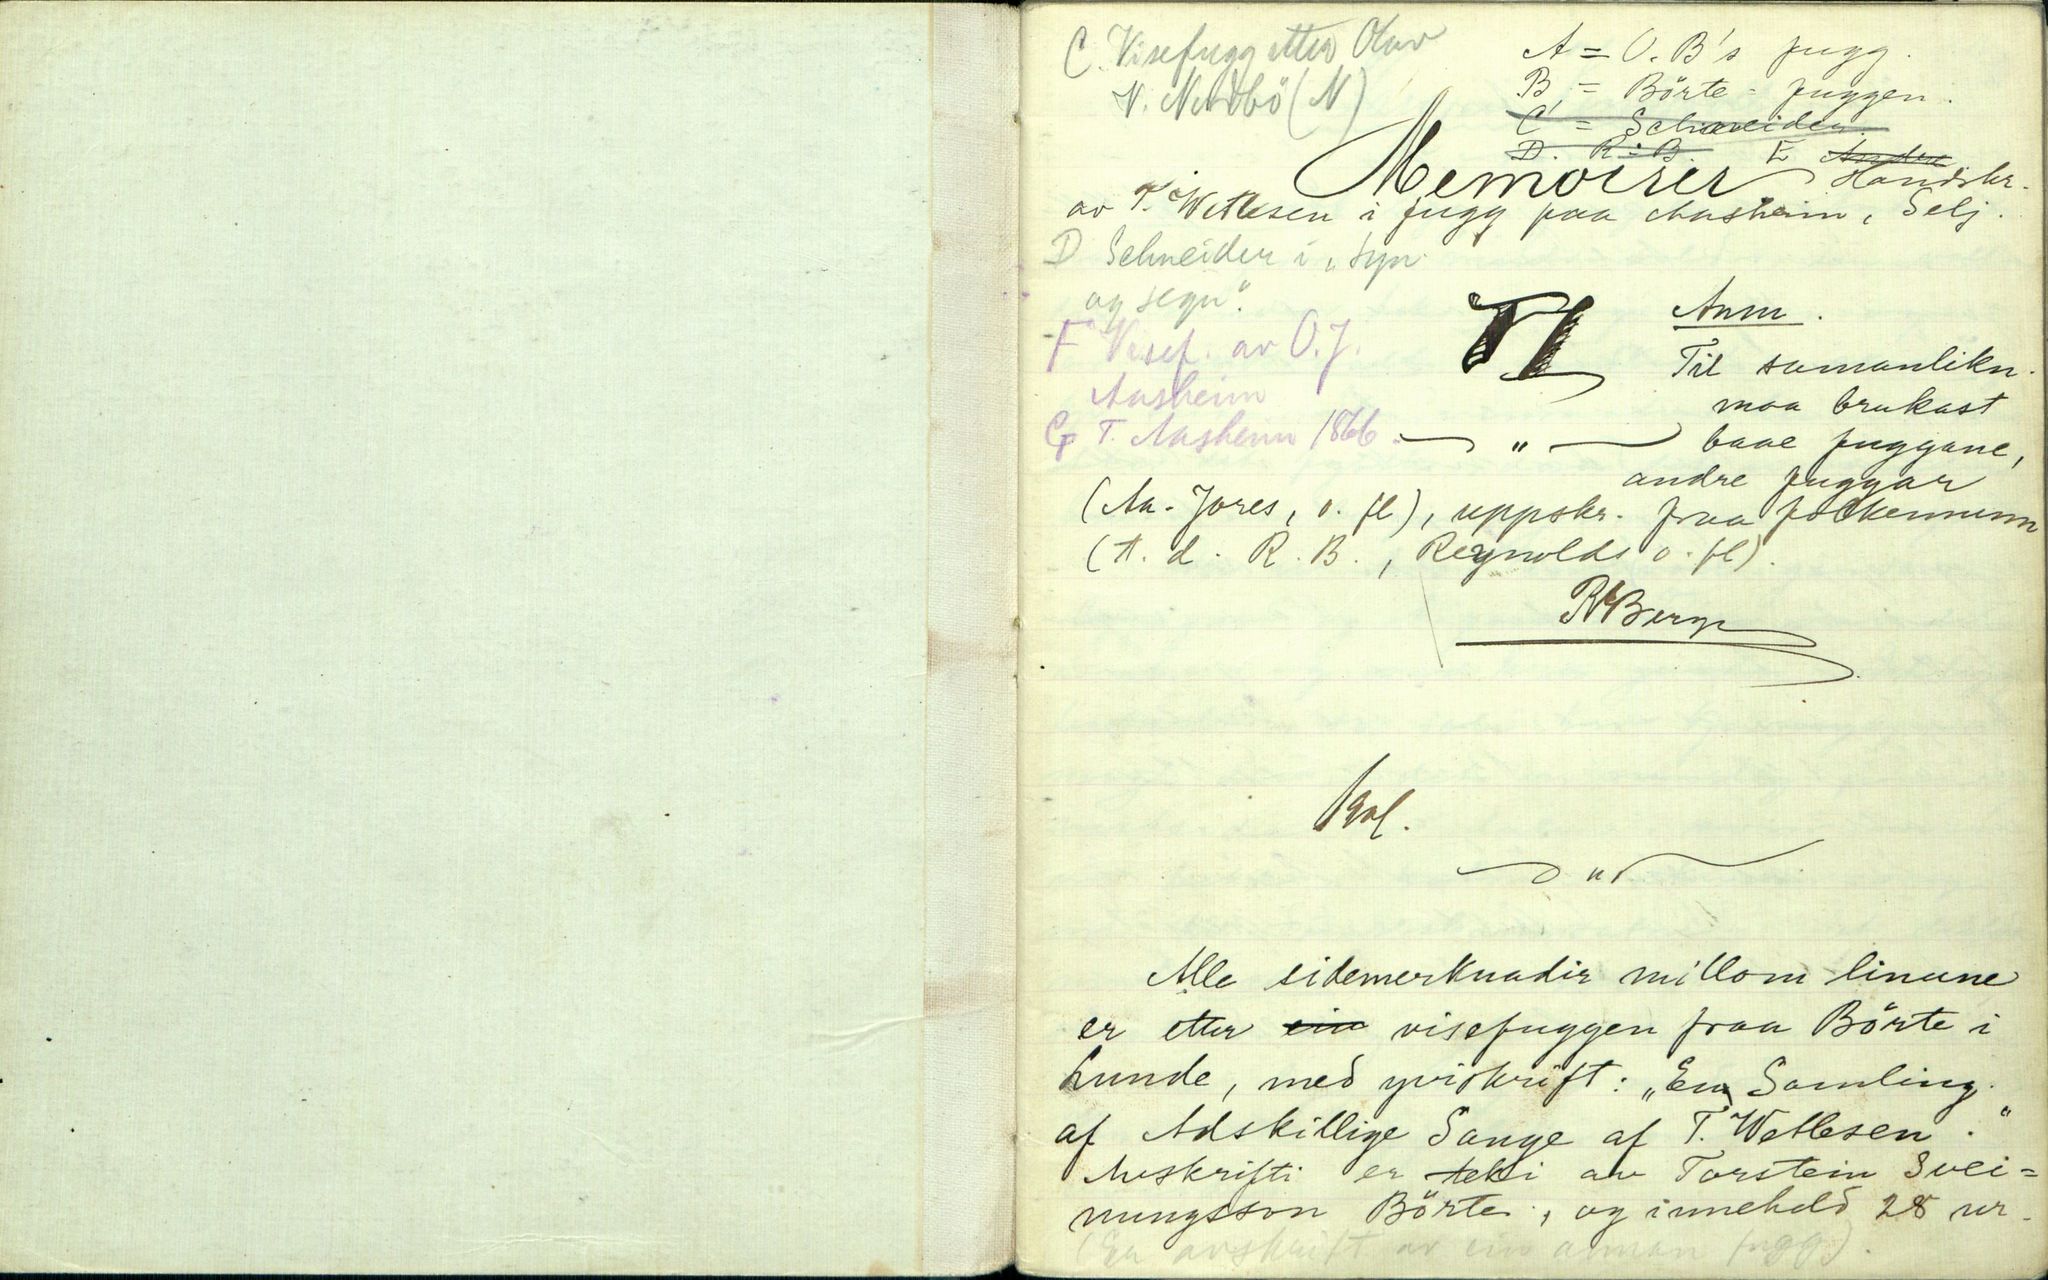 C. Visefugg etter Olav
N. Nordbö (N)
A = O. B's fugg.
B = Börte-fuggen.
C = Schneider.
D. R. B. E Andre Handskr.
Memoirer
av T. Wetlesen i fugg paa Aasheim, Selj.
D Schneider i „Syn
og segn".
F Visef. av O. J.
Aasheim
G T. Aasheim 1866.
Anm.
Til samanlikn.
maa brukast
baae fuggane,
andre fuggar
(Aa. Jores, o. fl), uppskr. fraa folkemunn
(t. d. R. B., Reynolds o. fl).
R Berge
Alle sidemerknadir millom linune
er etter ein visefuggen fraa Börte i
Lunde, med yviskrift: „En Samling
af Adskillige Sange af T. Wetlesen."
Avskrifti er teki av Torstein Svei=
nungsson Börte, og inneheld 28 nr.
(Er avskrift av ein annan fugg).